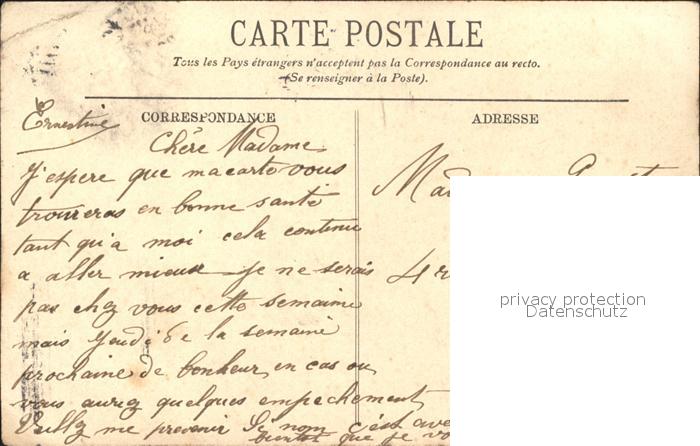 CARTE POSTALE
Tous les Pays étrangers n'acceptent pas la Correspondance au recto.
(Se renseigner à la Poste).
CORRESPONDANCE
ADRESSE
Ernestine
Chère Madame
J'espere que ma carte vous
trouveras en bonne santé
tant qu'a moi cela continu
a aller mieux je ne serais
pas chez vous cette semaine
mais Jeudi de la semaine
prochaine de bonheur, en cas ou
vous auriez quelques empechement
Veillez me prevenir Si non c'est ave
bientot que je vo
Mad
4 r
privacy protection
Datenschutz